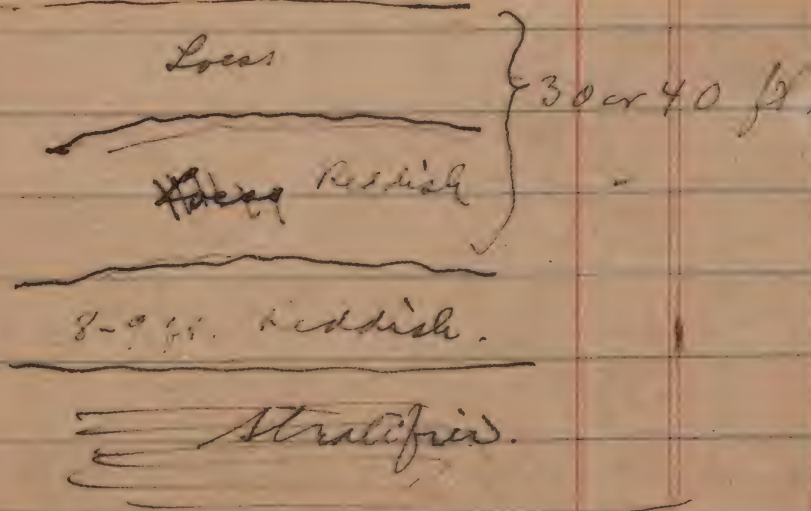 Loess
30 or 40 ft.
Reddish
8-9 ft. Reddish.
Stratified.